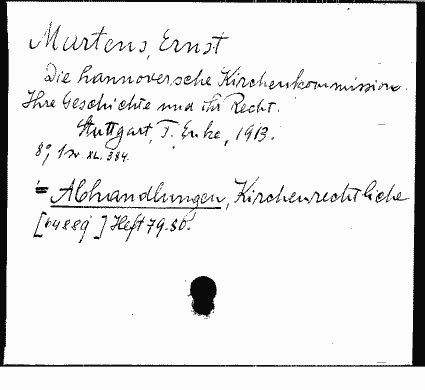 Martens, Ernst
Die hannoversche Kirchenkommission.
Ihre Geschichte und ihr Recht.
Stuttgart, F. Enke, 1913.
8°, 1 Bl. XL. 384.
= Abhandlungen, Kirchenrechtliche
[64889] Heft 79.80.